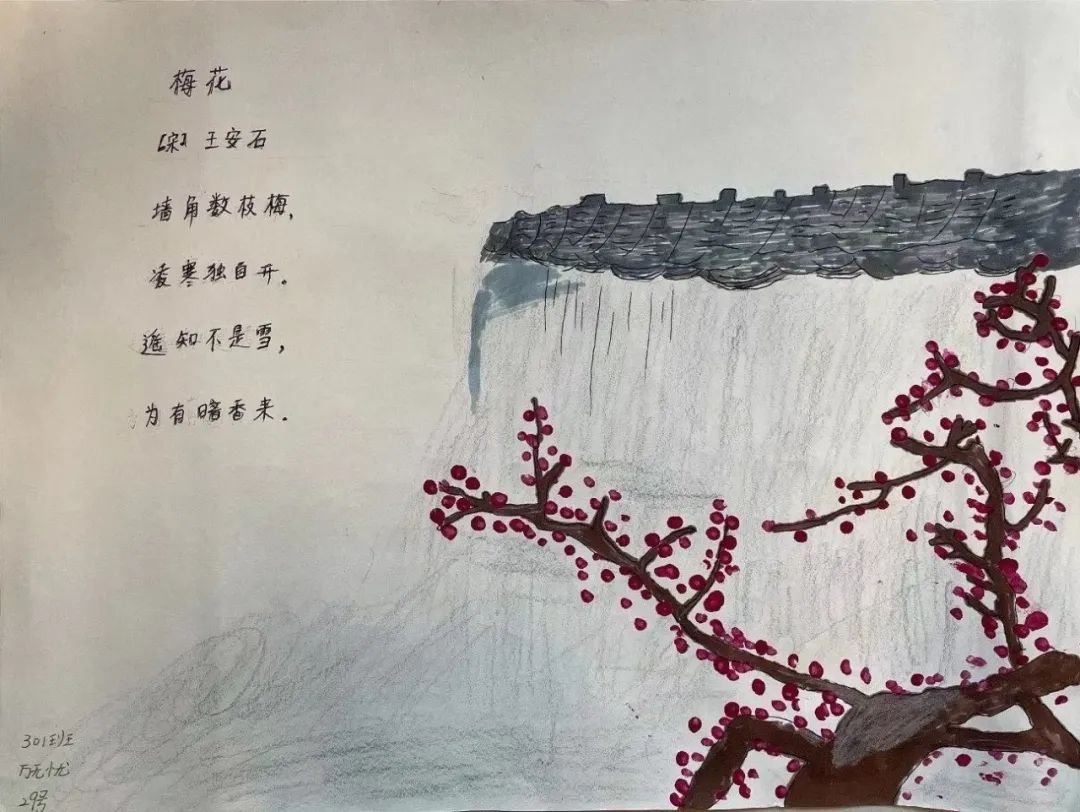 梅花
[宋] 王安石
墙角数枝梅，
凌寒独自开。
遥知不是雪，
为有暗香来。
301班
万无忧
29号